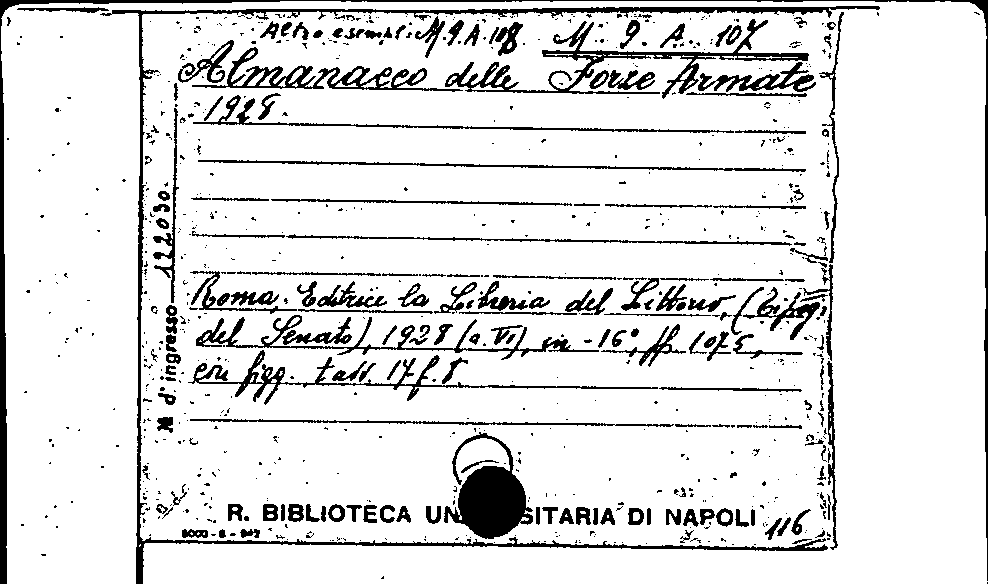 Altro esempl. M. 9. A. 108 M. 9. A. 107
Almanacco delle Forze Armate
1928.
Nº d'ingresso 122030.
Roma, Editrice la Libreria del Littorio, (Tipog.
del Senato), 1928 (a. VI), in -16º, pp. 1075,
con figg. tavv. 17 f. t.
R. BIBLIOTECA UN SITARIA DI NAPOLI
116